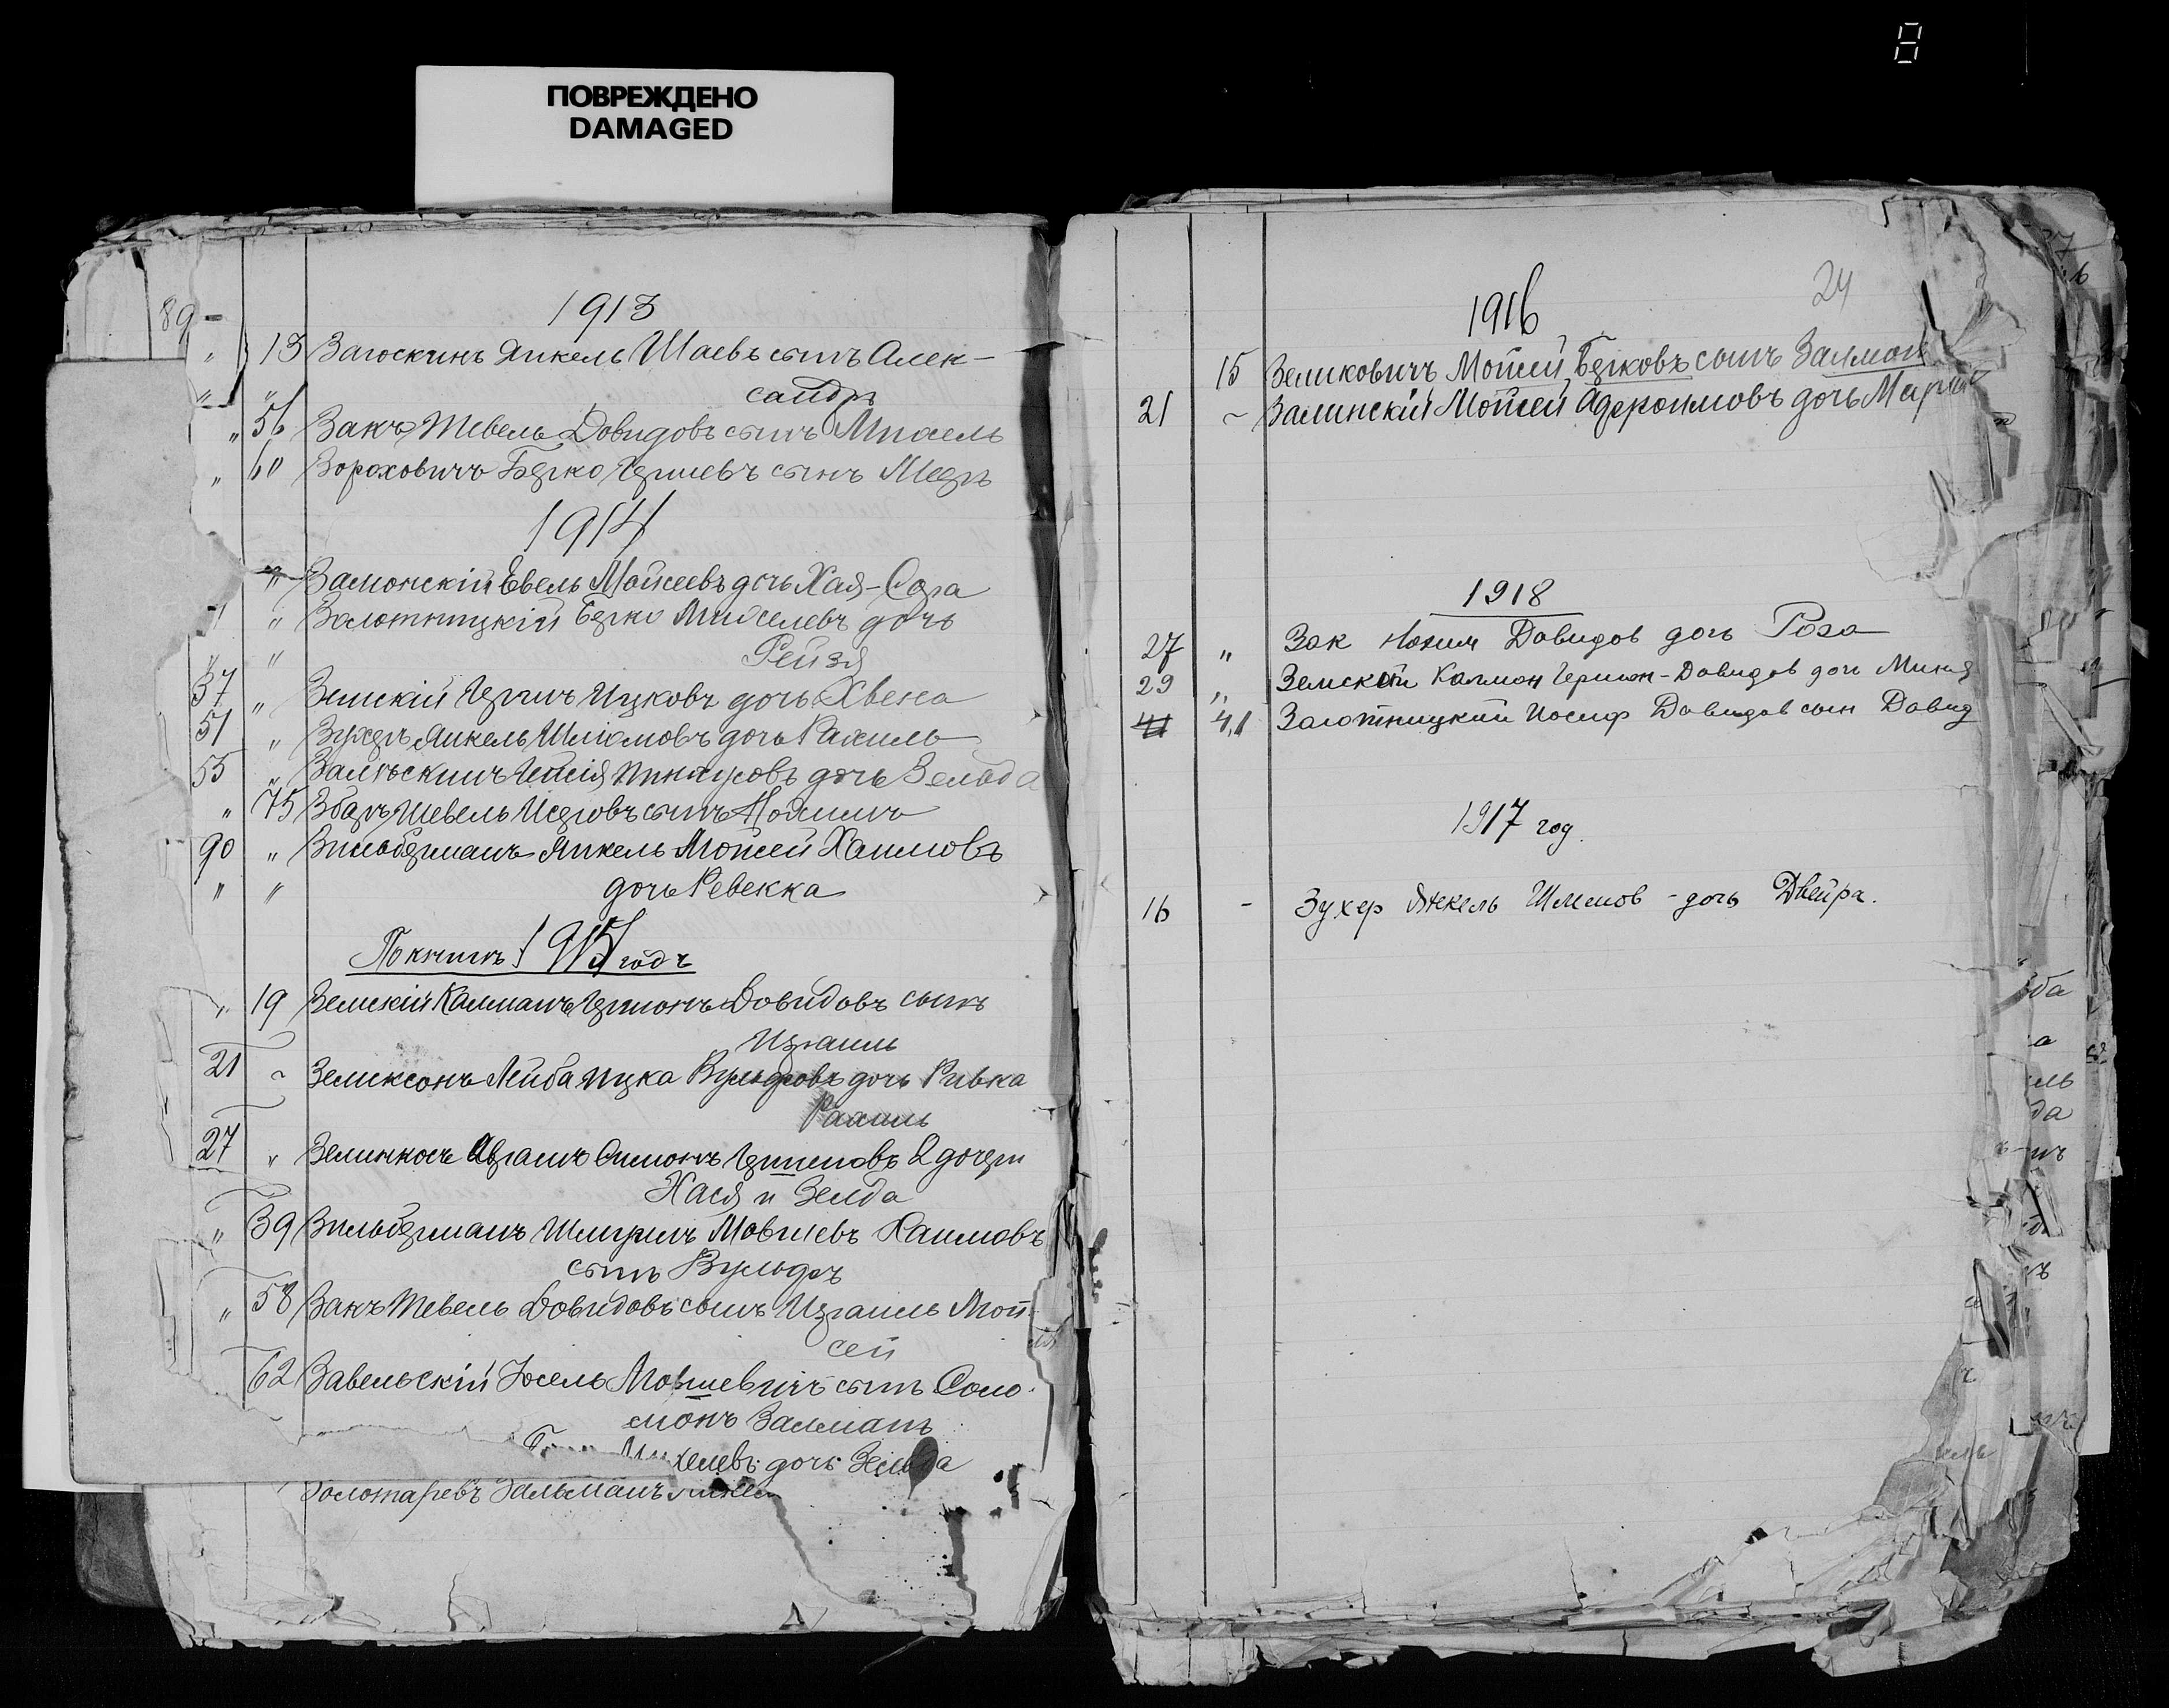 8
ПОВРЕЖДЕНО
DAMAGED
89 -
1913
" 13 Загоскинъ Янкель Шаевъ сынъ Алек-
" " сандръ
" 56 Закъ Тевель Довидовъ сынъ Михель
" 60 Зороховичъ Берко Гершевъ сынъ Мееръ
1914
" Замонскій Евель Мойсеевъ дочь Хая-Сора
" Золотницкій Берко Михелевъ дочь
" " Рейзя
37 " Земскій Гершъ Ицковъ дочь Хвена
51 " Зухеръ Янкель Шліомовъ дочь Рахиль
55 " Пинхусовъ дочь Зельда
" 75 Збаръ Шевель сынъ Нохимъ
90 " Зильберманъ Янкель Мойсей Хаимовъ
" " дочь Ревекка
1915 годъ
" 19 Земскій Калманъ Гершонъ Довидовъ сынъ
Израиль
21 ~ Зеликсонъ Лейба Ицка Вульфовъ дочь Ривка
Рахиль
27 " Абрамъ Симонъ 2 дочери
Хася и Зелда
" 39 Зильберманъ Шмерилъ Мовшевъ Хаимовъ
сынъ Вульфъ
" 58 Закъ Тевель Довидовъ сынъ Израиль Мой-
сей
62 Завельскій Іосель Мовшевичъ сынъ Соло-
монъ Залманъ
хелевъ дочь Зельда
Золотаревъ Зальманъ
24
1916
15 Зеликовичъ Мойсей Берковъ сынъ Залман
21 ~ Залинскій Мойсей дочь Мария
1918
27 " Зак Нохим Давидов дочь Роза
29 " Земский Калман Гершон-Давидов дочь Миня
41 41 Золотницкий Иосиф Давидов сын Давид
1917 год.
16 - Зухер Янкель Шлемов - дочь Двейра.